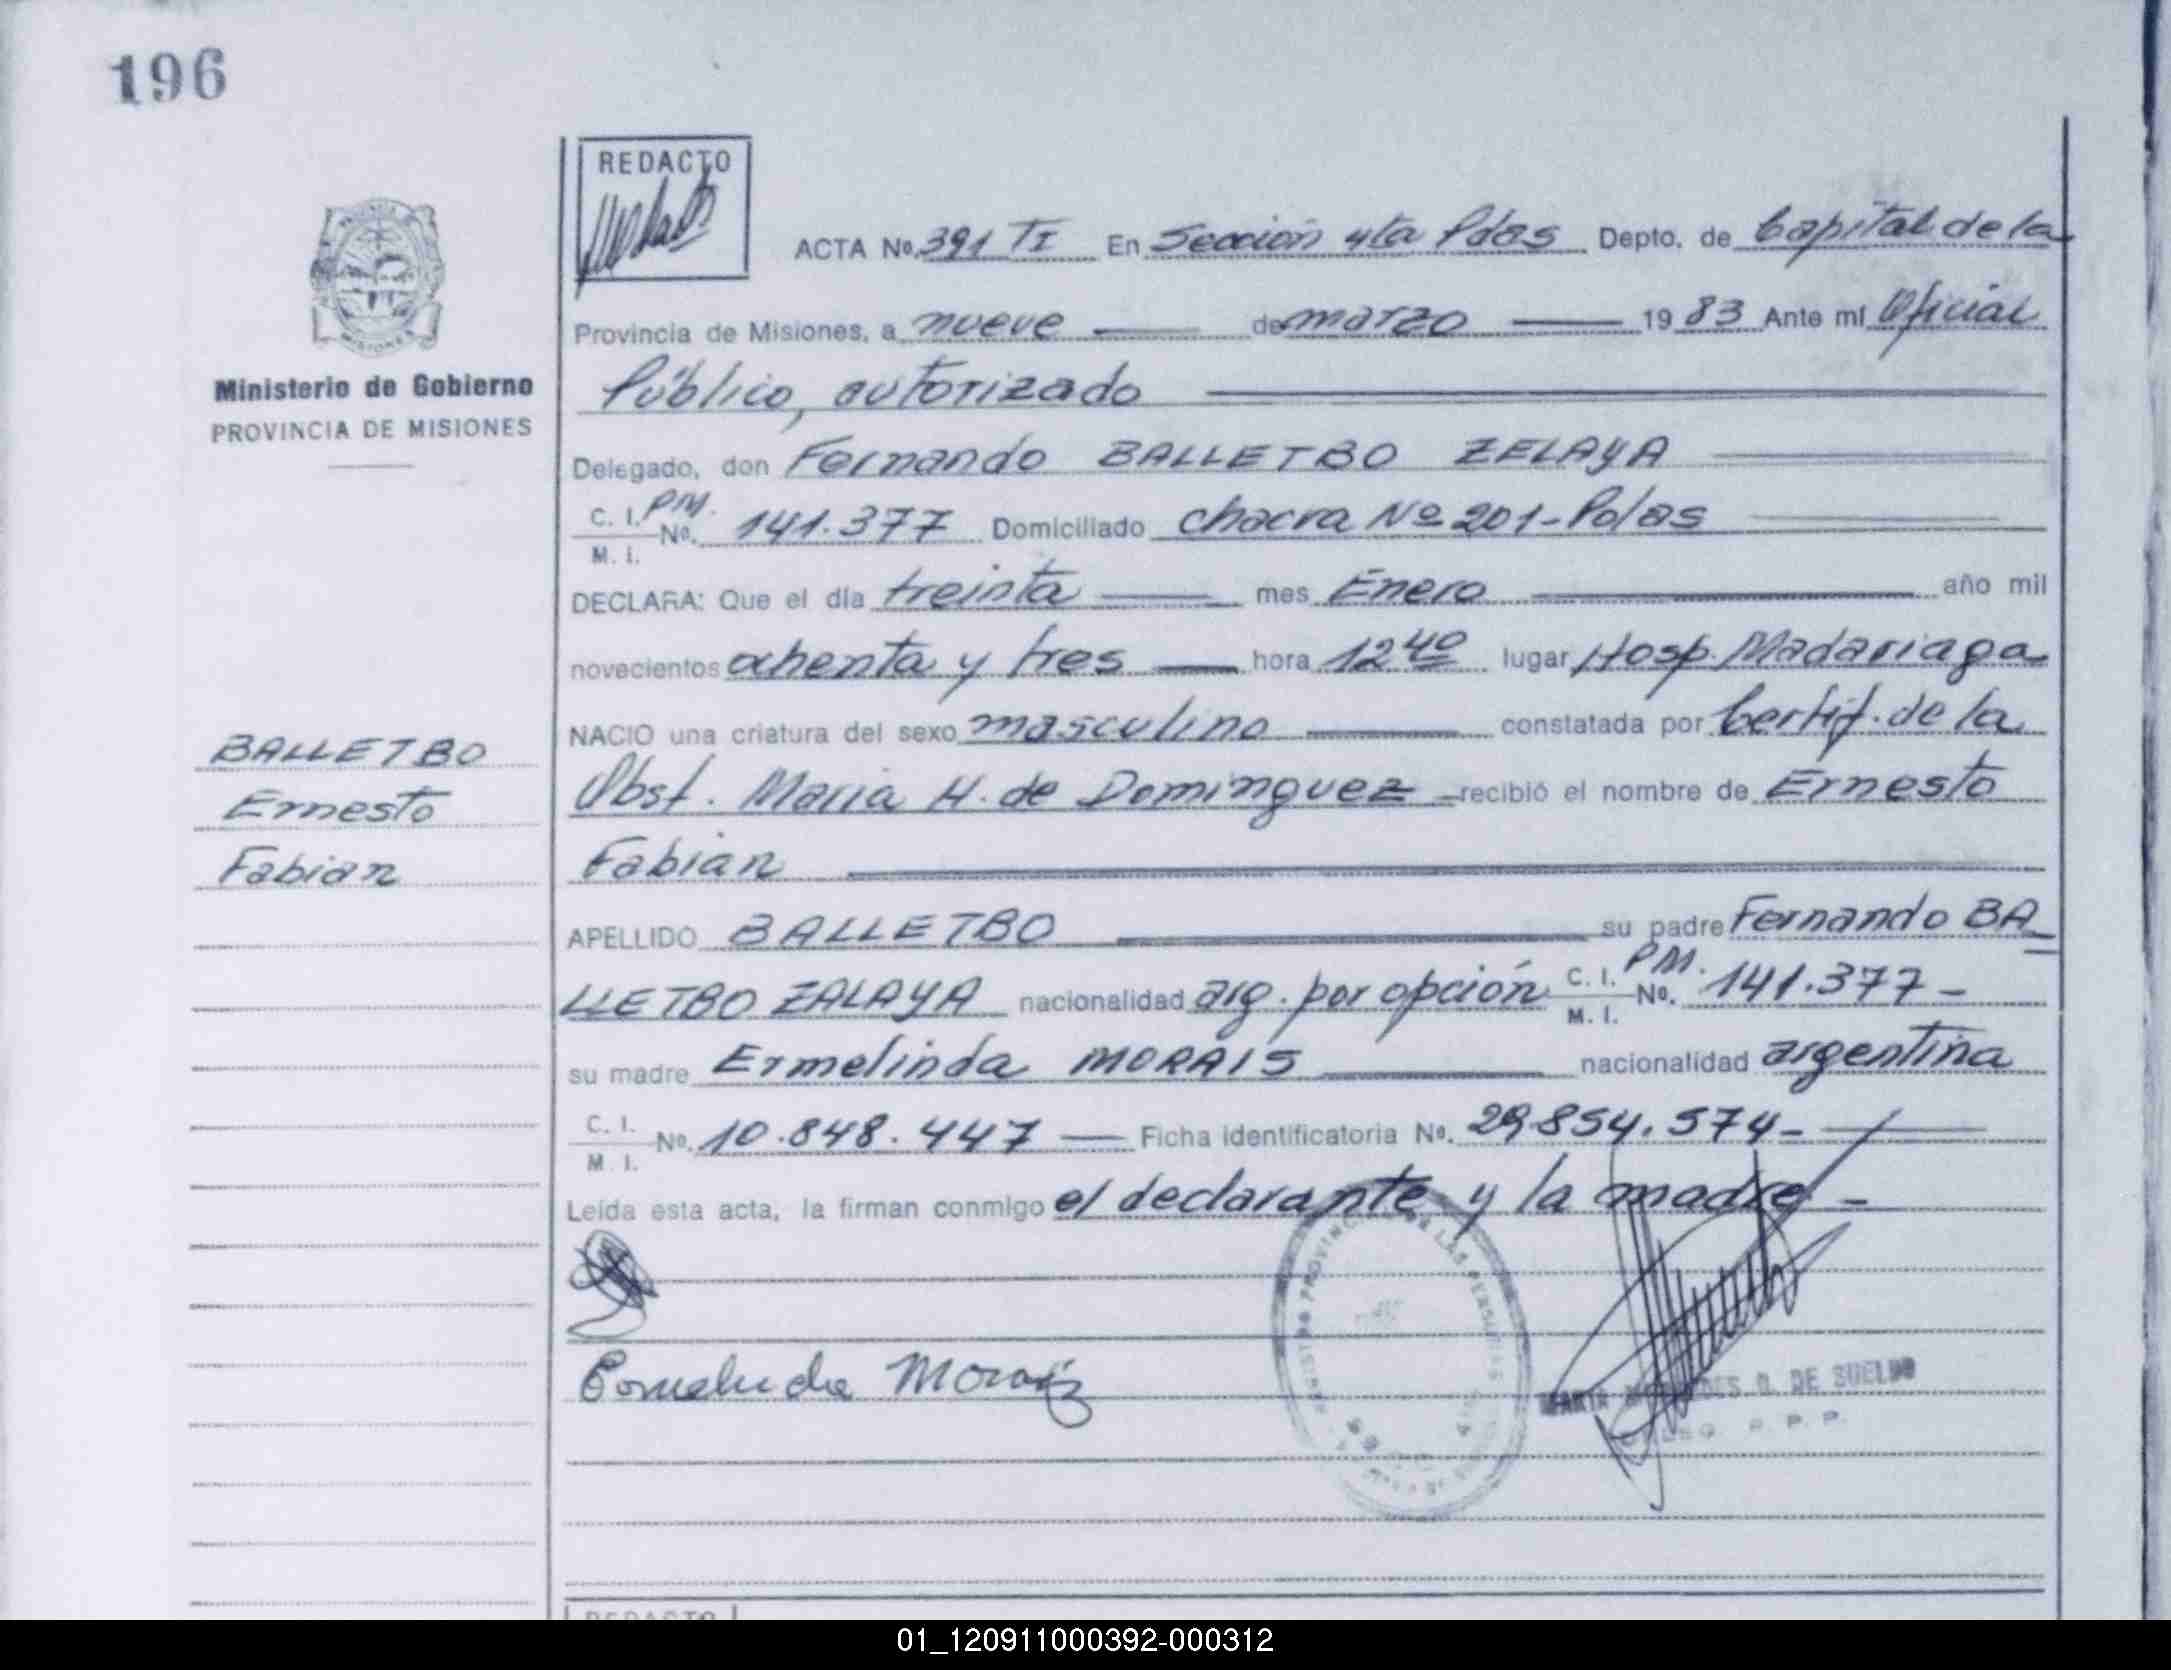 196
REDACTO
ACTA Nº. 391 TI En Sección 4ta Pdas Depto. de Capital de la
Provincia de Misiones, a nueve de marzo 1983 Ante mí Oficial
Público, autorizado
Ministerio de Gobierno
PROVINCIA DE MISIONES
Delegado, don Fernando BALLETBO ZELAYA
C. I. PM.
M. I. Nº. 141.377 Domiciliado chacra Nº 201-Pdas
DECLARA: Que el día treinta mes Enero año mil
novecientos ochenta y tres hora 12 40 lugar Hosp. Madariaga
NACIO una criatura del sexo masculino constatada por Certif. de la
BALLETBO
Obst. Maria H. de Dominguez recibió el nombre de Ernesto
Ernesto
Fabian
Fabian
APELLIDO BALLETBO su padre Fernando BA_
LLETBO ZALAYA nacionalidad arg. por opción C. I. PM.
M. I. Nº. 141.377-
su madre Ermelinda MORAIS nacionalidad argentina
C. I.
M. I. Nº. 10.848.447 Ficha identificatoria Nº. 29.854.574-
Leída esta acta, la firman conmigo el declarante y la madre -
DE SUELDO
P. P. P.
REDACTO
01_120911000392-000312